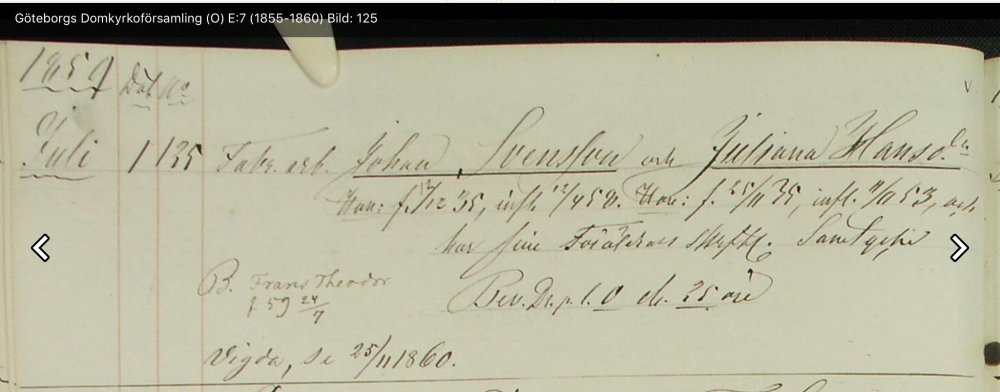 Göteborgs Domkyrkoförsamling (O) E:7 (1855-1860) Bild: 125
1859 Dat No
Juli 1 135 Fabr. arb. Johan Svensson och Juliana Hansd.
Han: f. 17/12 35, infl. 12/4 58. Hon: f. 25/11 35, infl. 11/11 53, och
har sine Föräldrars skriftl. Samtycke
B. Frans Theodor
f. 59 24/7
Bev. Dr. p. l. 0 ch. 25 öre
Vigda, se 25/11 1860.